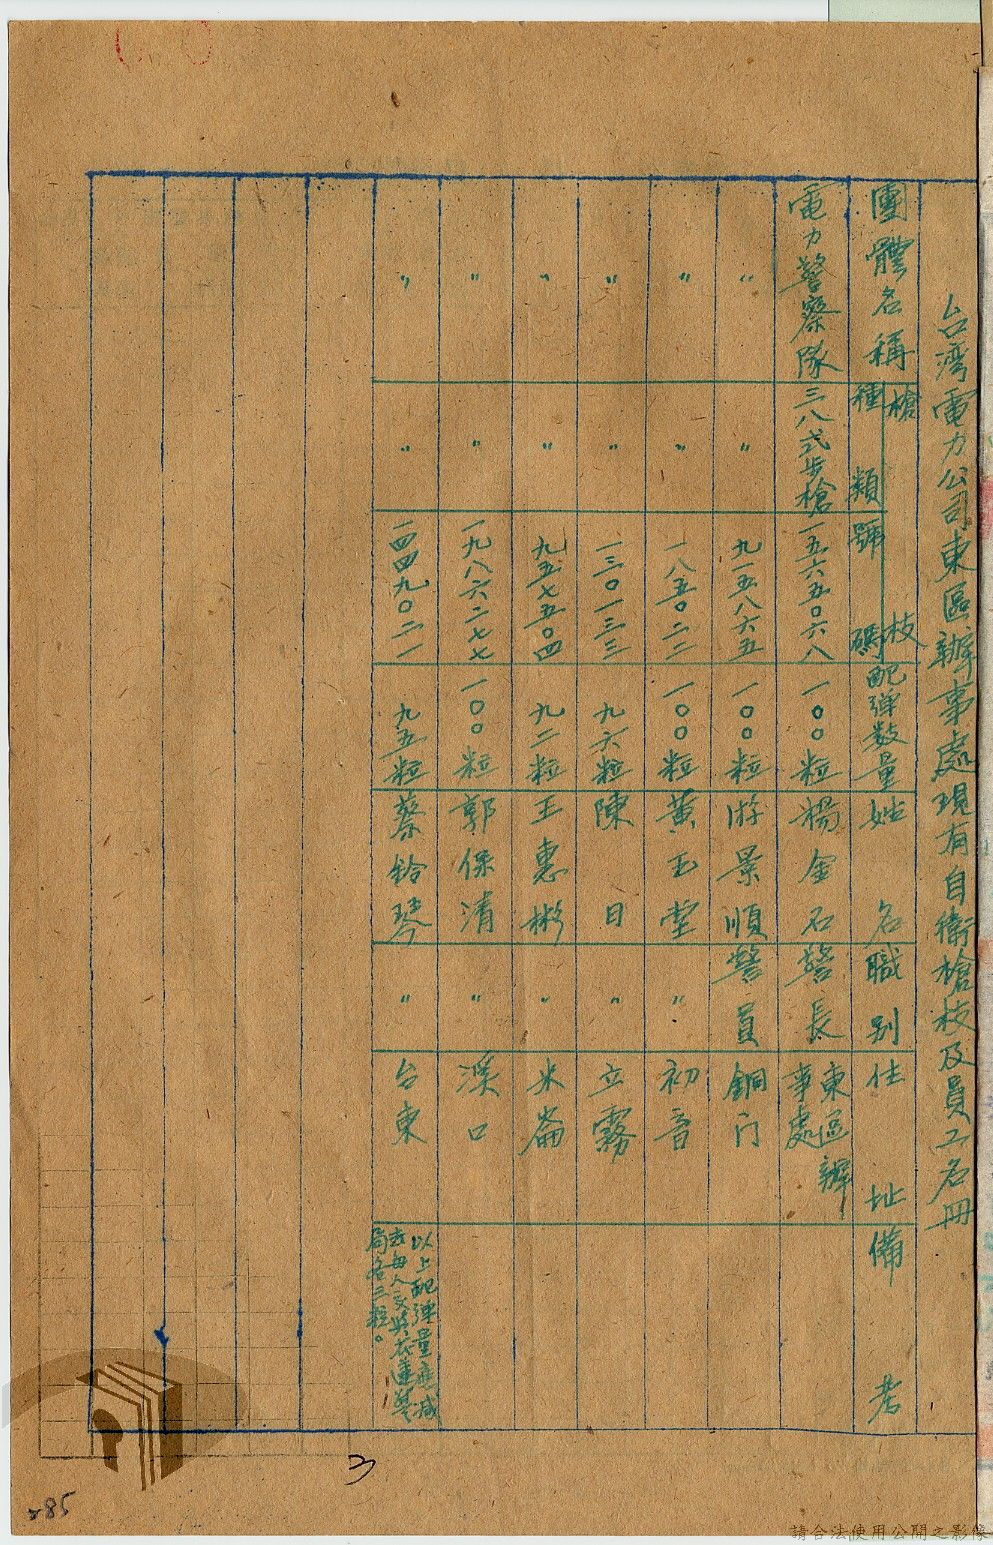 台湾電力公司東區辦事處現有自衛槍枝及員工名冊
團體名稱 槍枝 種類 號碼 配弹数量 姓名 職別 住址 備考
電力警察隊 三八式步槍 一五六五〇六八 一〇〇粒 楊金石 警長 東區辦事處
〃 〃 九一五八六五 一〇〇粒 游景順 警員 銅门
〃 〃 一八五〇二二 一〇〇粒 黃玉堂 〃 初音
〃 〃 一三〇一三三 九六粒 陳日 〃 立霧
〃 〃 九五七五〇四 九二粒 王惠彬 〃 米崙
〃 〃 一九八六二七七 一〇〇粒 郭保清 〃 溪口
〃 〃 一四四九〇二一 九五粒 蔡鈴琴 〃 台東 以上配弹量應減去每人交與花蓮警局各三粒。
3
285
請合法使用公開之影像